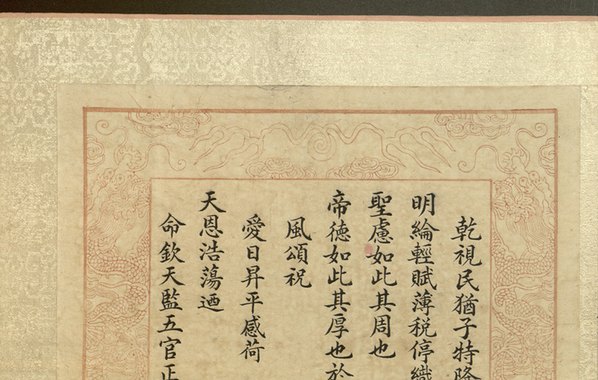 乾視民猶子特降
明綸輕賦薄稅停織
聖慮如此其周也
帝德如此其厚也於
風頌祝
愛日昇平感荷
天恩浩蕩迺
命欽天監五官正